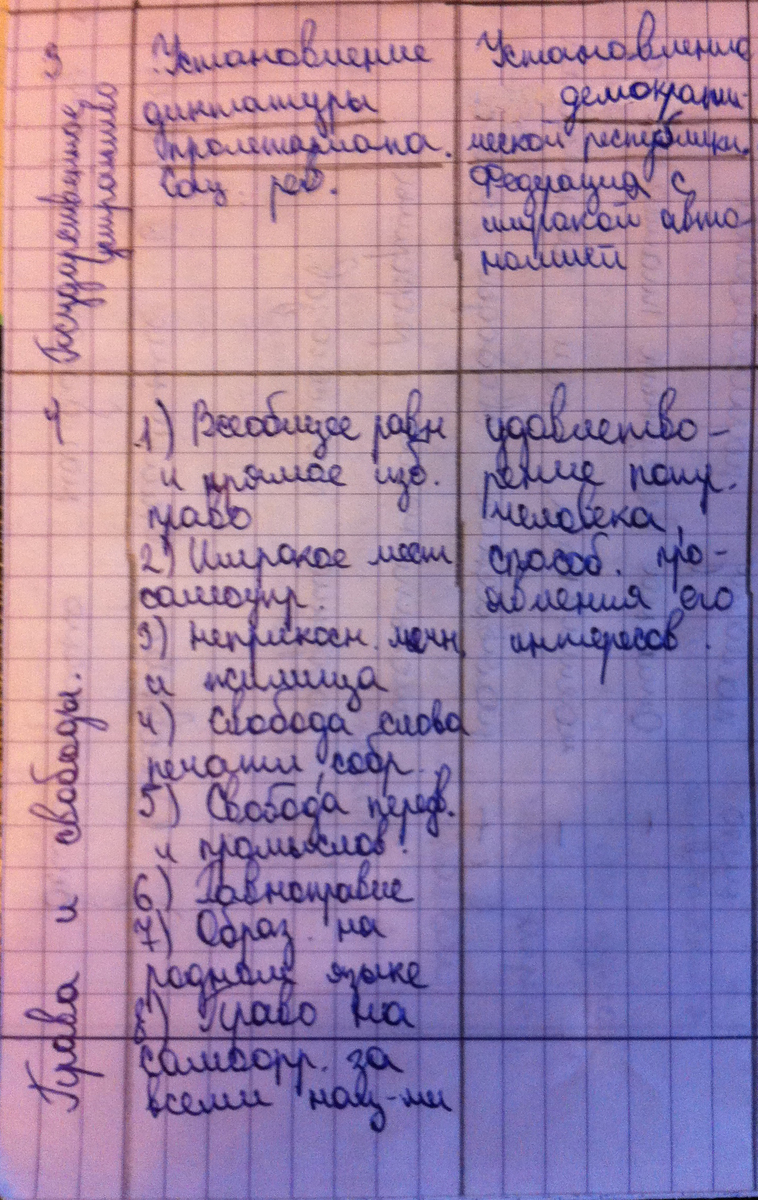 3
Государственное
устройство
Установление
диктатуры
пролетариата.
Соц. рев.
Установление
демократи-
ческой республики.
Федерация с
широкой авто-
номией
4
Права и свободы.
1) Всеобщее равн
и прямое изб.
право
2) Широкое мест
самоупр.
3) Неприкосн. личн.
и жилища
4) Свобода слова
печати, собр.
5) Свобода перед.
и промыслов.
6) Равноправие
7) Образ. на
родном языке
8) Право на
самоопр. за
всеми нац-ми
удовлетво-
рение потр.
человека,
способ. про-
явления его
интересов.